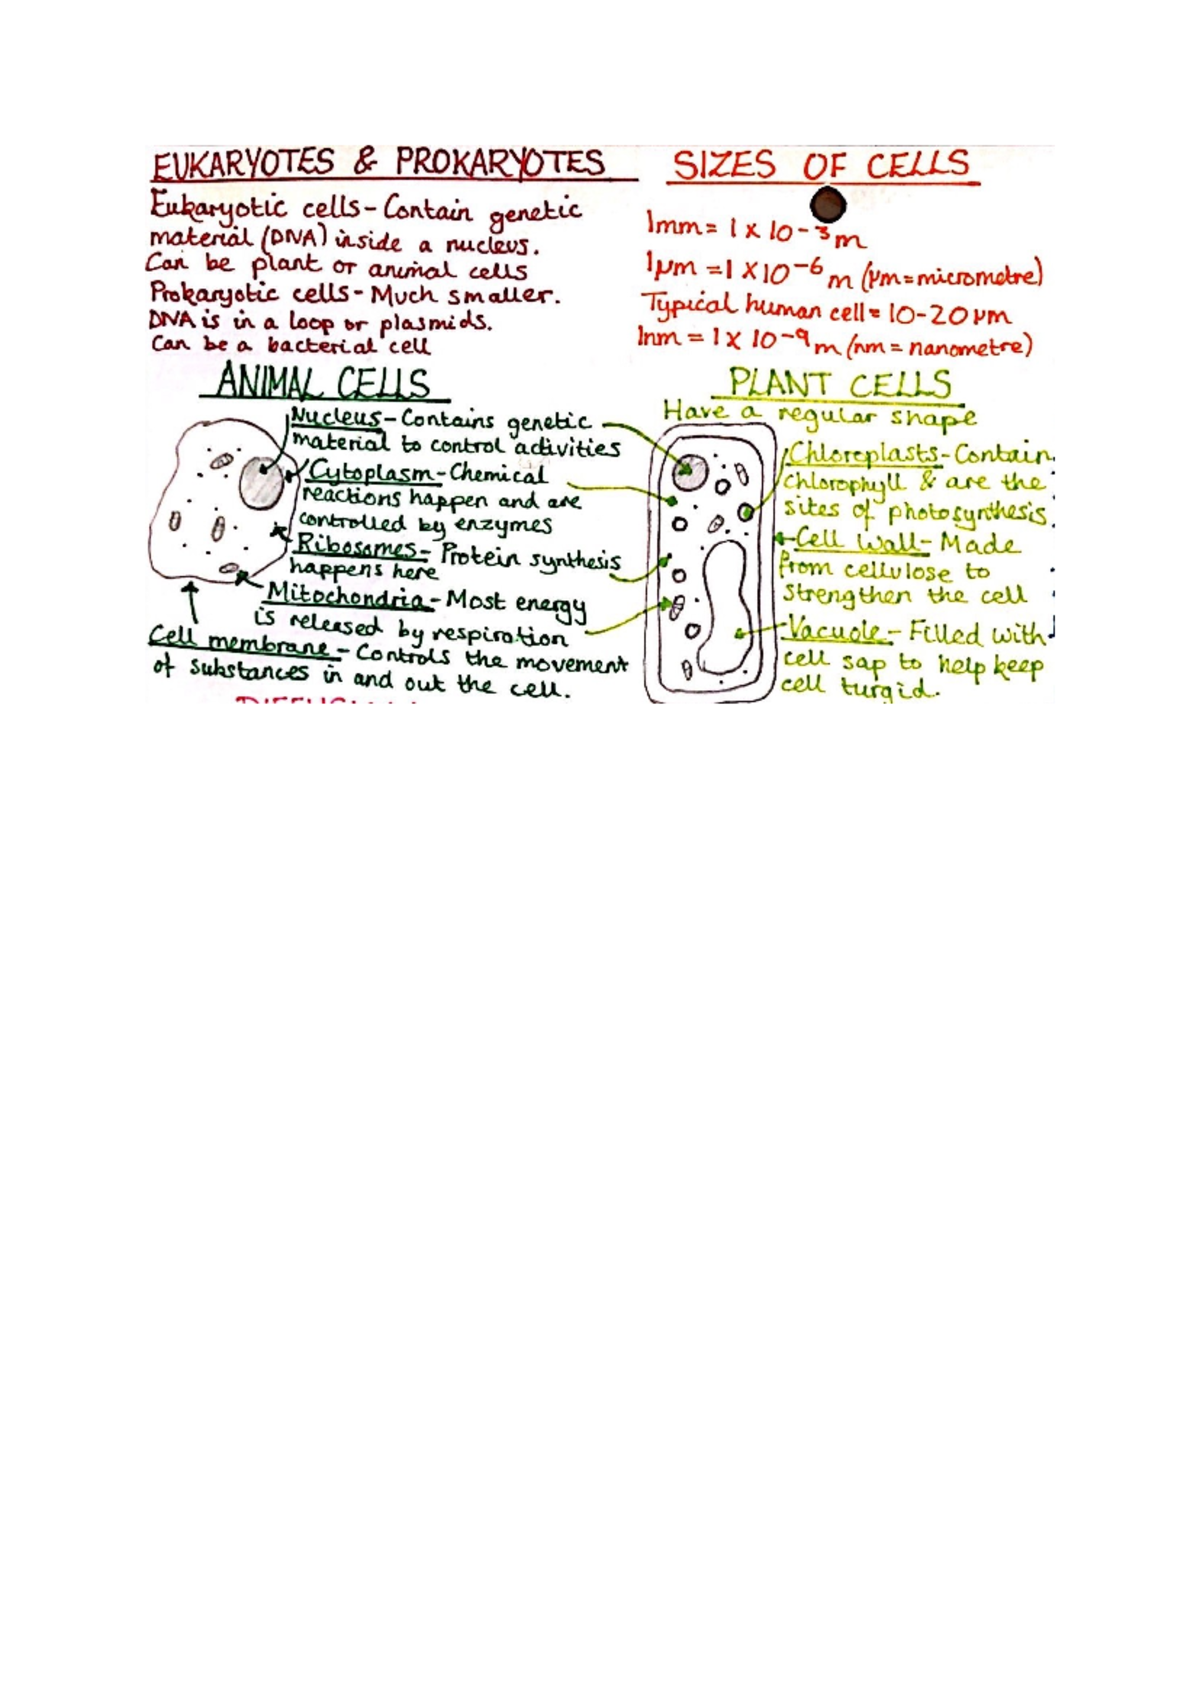 EUKARYOTES & PROKARYOTES
Eukaryotic cells - Contain genetic
material (DNA) inside a nucleus.
Can be plant or animal cells
Prokaryotic cells - Much smaller.
DNA is in a loop or plasmids.
Can be a bacterial cell
SIZES OF CELLS
1mm = 1 x 10-3 m
1μm = 1 x 10-6 m (μm = micrometre)
Typical human cell = 10-20 μm
1nm = 1 x 10-9 m (nm = nanometre)
ANIMAL CELLS
Nucleus - Contains genetic
material to control activities
Cytoplasm - Chemical
reactions happen and are
controlled by enzymes
Ribosomes - Protein synthesis
happens here
Mitochondria - Most energy
is released by respiration
Cell membrane - Controls the movement
of substances in and out the cell.
PLANT CELLS
Have a regular shape
Chloroplasts - Contain
chlorophyll & are the
sites of photosynthesis.
Cell Wall - Made
from cellulose to
strengthen the cell
Vacuole - Filled with
cell sap to help keep
cell turgid.